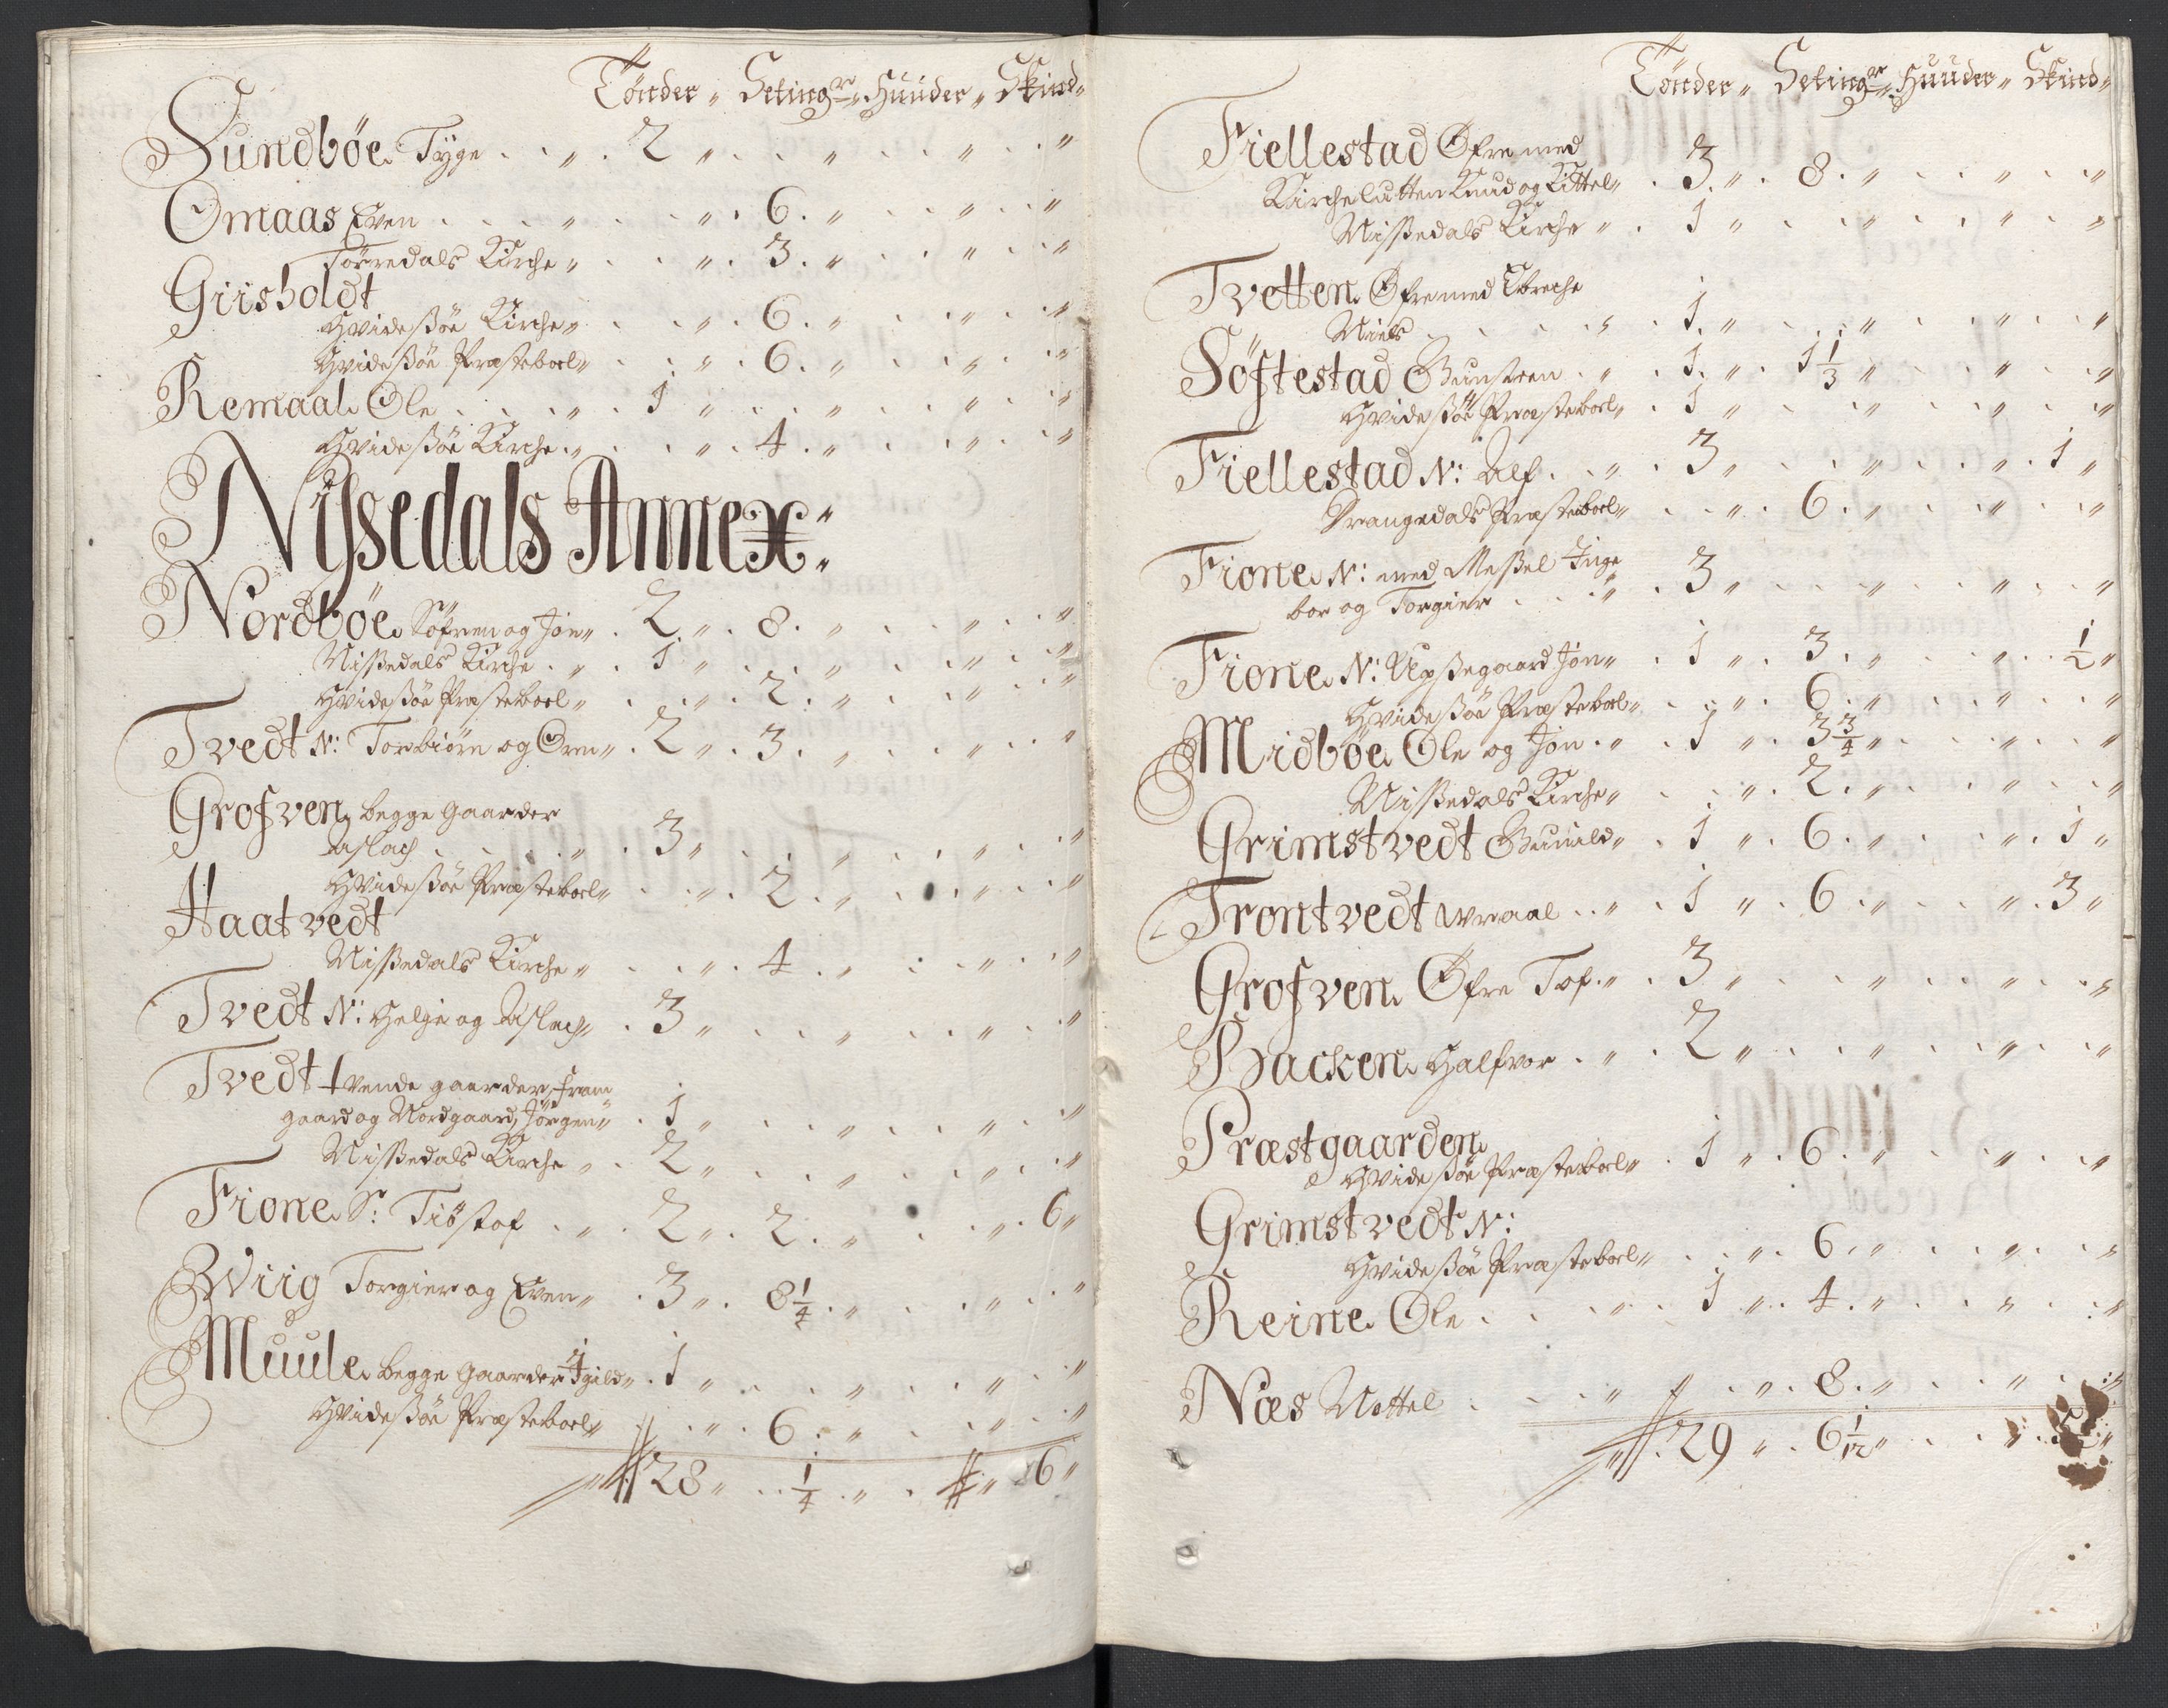 Tönder „ Setingr „ Huuder „ Skind „
Sundböe Tyge . . „ . 2 „ . . „ . . „ . . „
Omaas Even . . . „ . . „ . 6 . „ . . „ . . „
Törredals Kirche „ . . „ . 3 . „ . . „ . . „
Griisholdt
Hvidesøe Kirche „ . . „ . 6 . „ . . „ . . „
Hvidesøe Præsteboel „ . . „ . 6 . „ . . „ . . „
Remaal Ole . . . „ . 1 „ . . „ . . „ . . „
Hvidesøe Kirche . „ . . „ . 4 . „ . . „ . . „
Nissedals Annex:
Nordböe Söfren og Jon „ . 2 „ . 8 . „ . . „ . . „
Nissedals Kirche . „ . 1 „ . . „ . . „ . . „
Hvidesøe Præsteboel „ . . „ . 2 . „ . . „ . . „
Tvedt N: Torbiörn og Orm „ . 2 „ . 3 . „ . . „ . . „
Grofven begge gaarder
Aslach . . . „ . 3 „ . . „ . . „ . . „
Hvidesøe Præsteboel „ . . „ . 2 . „ . . „ . . „
Haatvedt
Nissedals Kirche „ . . „ . 4 . „ . . „ . . „
Tvedt N: Helge og Aslach „ . 3 „ . . „ . . „ . . „
Tvedt tvende gaarder, fram
gaard og Nordgaard, Jörgen „ . 1 „ . . „ . . „ . . „
Nissedals Kirche „ . 2 „ . . „ . . „ . . „
Fione S: Tiöstof . . „ . 2 „ . 2 . „ . . „ . 6 „
Wiig Torgier og Even „ . 3 „ . 8 1/4 . „ . . „ . . „
Muule begge gaarder Igild „ . 1 „ . . „ . . „ . . „
Hvidesøe Præsteboel „ . . „ . 6 . „ . . „ . . „
28 „ . . 1/4 . „ . . „ 6 „
Tönder „ Setingr „ Huuder „ Skind „
Fiellestad Øfre med
Kirchelutten Knud og Kittel „ . 3 . „ . 8 . „ . . „ . . „
Nissedals Kirche „ . 1 „ . . „ . . „ . . „
Tvetten Øfre med
Niels . . . „ . 1 . „ . . „ . . „ . . „
Söftestad Gunsteen . „ . 1 . „ . 1 1/3 „ . . „ . . „
Hvidesøe Præsteboel „ . 1 „ . . „ . . „ . . „
Fiellestad N: Alf . . „ . 3 „ . . „ . . „ . 1 „
Drangedals Præsteboel „ . . „ . 6 . „ . . „ . . „
Fione N: med Messel Inge
bor og Torgier . . . „ . 3 „ . . „ . . „ . . „
Fione N: Upsegaard Jon „ . 1 „ . 3 . „ . . „ . 1/2 „
Hvidesøe Præsteboel „ . . „ . 6 . „ . . „ . . „
Midböe Ole og Jon . „ . 1 „ . 3 3/4 „ . . „ . . „
Nissedals Kirche „ . . „ . 2 . „ . . „ . . „
Grimstvedt Gunild „ . 1 „ . 6 . „ . . „ . 1 „
Trontvedt Wraal . . „ . 1 „ . 6 . „ . . „ . 3 „
Grofven Øfre Tof . „ . 3 „ . . „ . . „ . . „
Backen Halfvor . „ . 2 „ . . „ . . „ . . „
Præstgaarden
Hvidesøe Præsteboel „ . 1 „ . 6 . „ . . „ . . „
Grimstvedt N:
Hvidesøe Præsteboel „ . . „ . 6 . „ . . „ . . „
Reine Ole . . . „ . 1 „ . 4 . „ . . „ . . „
Næs Nettel . . . „ . „ . 8 . „ . . „ . . „
29 „ . 6 1/12 „ . . „